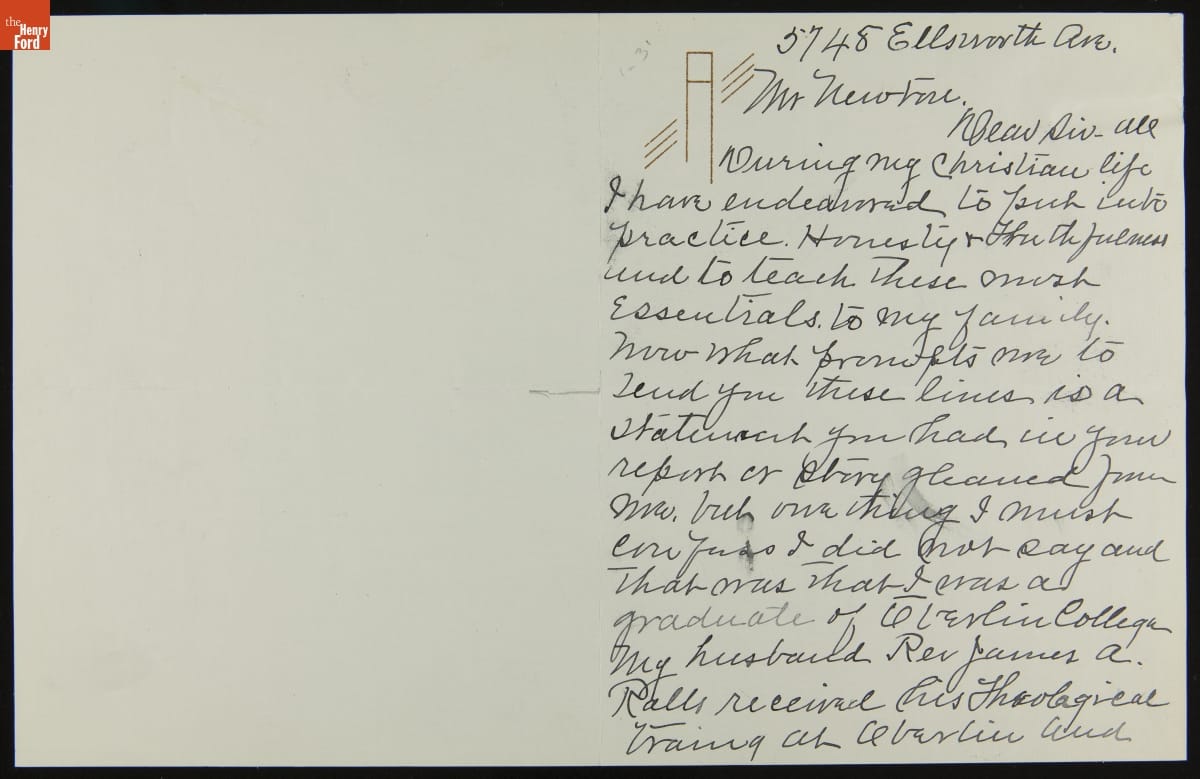 the
Henry
Ford
5748 Ellsworth Ave.
Mr Newton.
Dear Sir - all
During my Christian life
I have endeavored to put into
practice. Honesty & Thruthfulness
and to teach these most
Essentials. to my family.
Now what prompts me to
send you these lines is a
statement you had in your
report or story gleaned from
me. but one thing I must
confess I did not say and
that was that I was a
graduate of Oberlin College
My husband Rev James A.
Ralls received his Theological
traing at Oberlin and